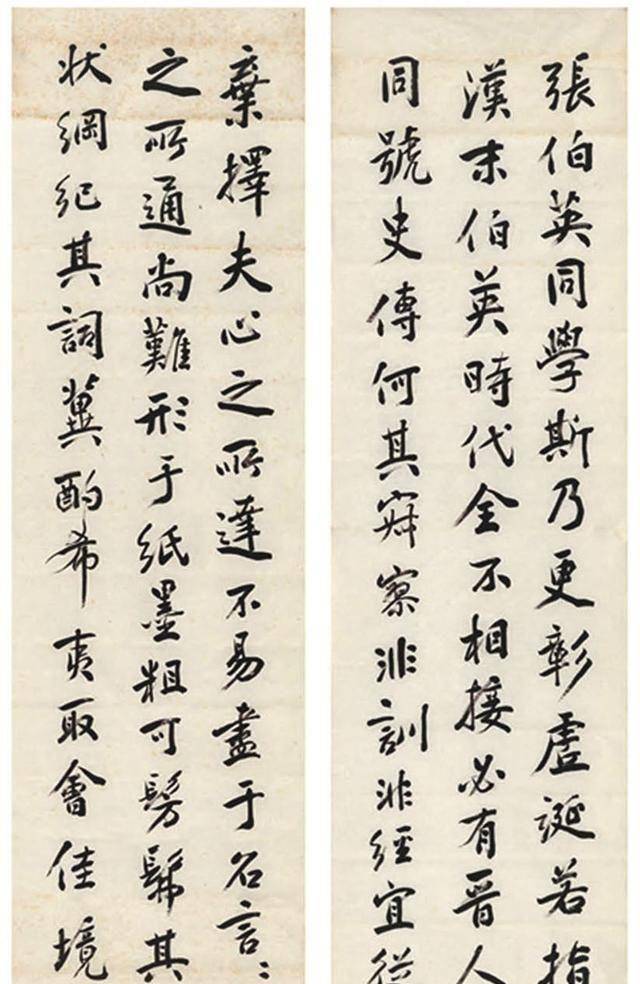 張伯英同學斯乃更彰虛誕若指
漢末伯英時代全不相接必有晉人
同號史傳何其寂寥非訓非經宜從
棄擇夫心之所達不易盡于名言〻
之所通尚難形于紙墨粗可髣髴其
狀綱紀其詞冀酌希夷取會佳境